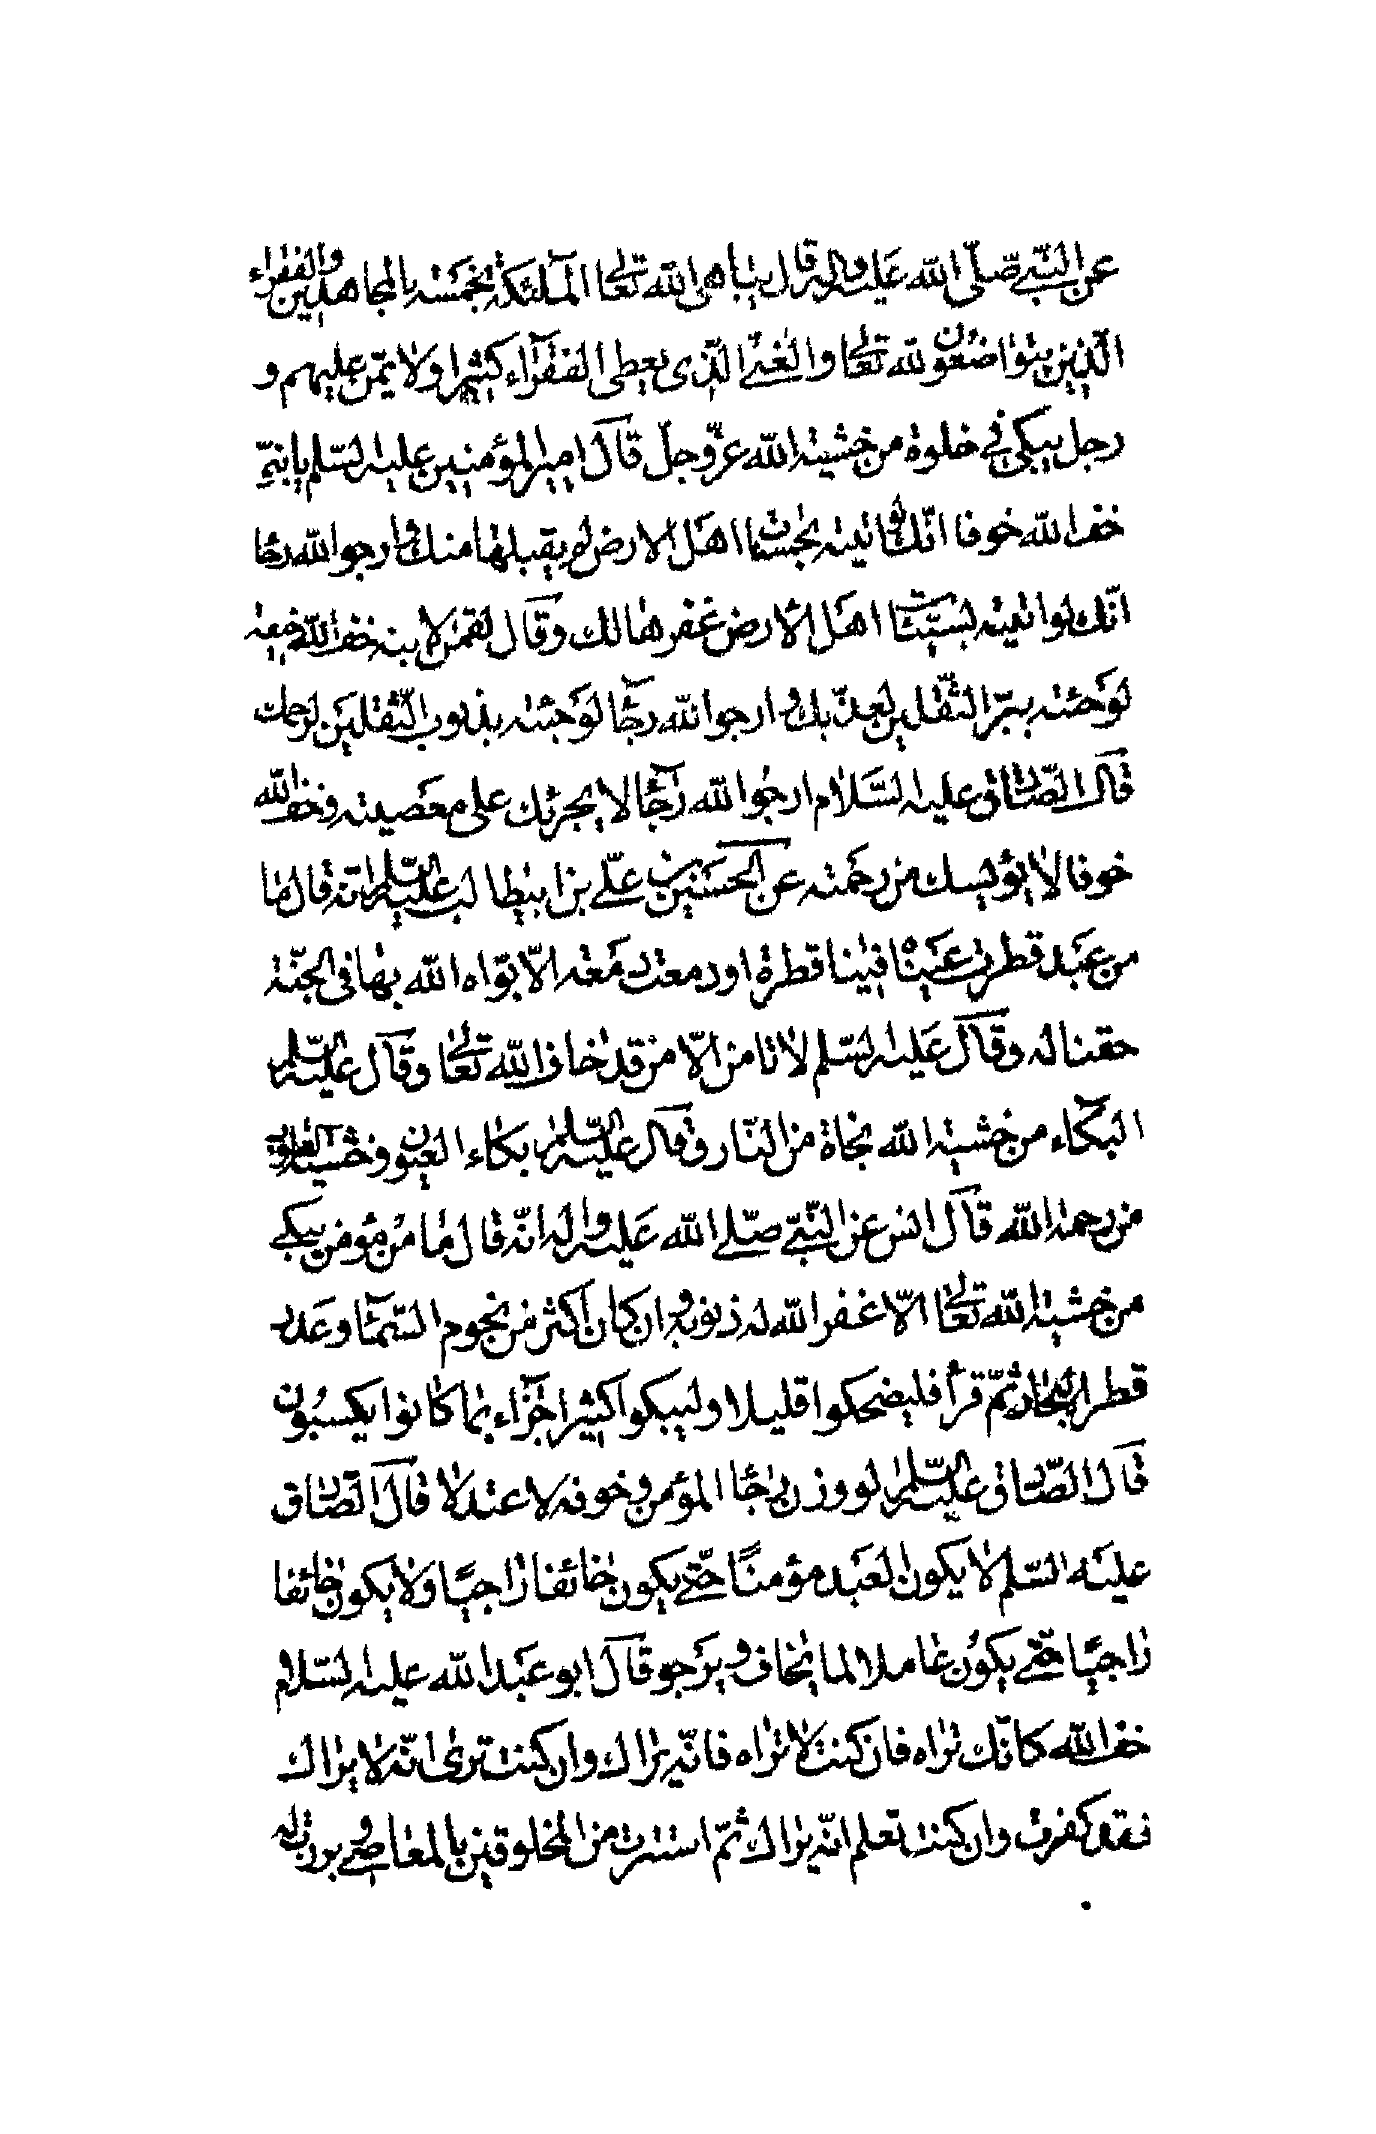 عن النبي صلّى الله عليه واله قال يباهى الله تعالى الملئكة بخمسة بالمجاهدين والفقراء
الّذين يتواضعون لله تعالى والغنى الّذى يعطى الفقرآء كثيرا ولا يمنّ عليهم و
رجل يبكى فى خلوة من خشية الله عزّوجلّ قال امير المؤمنين عليه السّلم يا بنىّ
خف الله خوفا انّك لو اتيته بحسنات اهل الارض لم يقبلها منك وارجو الله رجا
انّك لو اتيته بسيّئات اهل الارض غفرها لك وقال لقمن لابنه خف الله خيفة
لو جئته ببرّ الثّقلين لعذّبك وارجو الله رجآء لو جئته بذنوب الثّقلين لرحمك
قال الصّادق عليه السّلام ارجو الله رجآء لا يجرئك على معصيته وخف الله
خوفا لا يؤيسك من رحمته عن الحسين بن علّى بن ابيطالب عليه السّلم انّه قال ما
من عبد قطرت عيناه فينا قطرة او دمعت دمعة الّا بوّاه الله بها فى الجنّة
حقبا له وقال عليه السّلم لا تامن الّا من قد خاف الله تعالى وقال عليه السّلم
البكآء من خشية الله نجاة من النّار وقال عليه السّلم بكاء العيون وخشية القلوب
من رحمة الله قال انس عن النبّى صلّى الله عليه واله انّه قال ما من مؤمن يبكى
من خشية الله تعالى الّا غفر الله له ذنوبه وان كان اكثر من نجوم السّمآء وعدد
قطر البحار ثمّ قرأ فليضحكوا قليلا وليبكوا كثيرا جزآء بما كانوا يكسبون
قال الصّادق عليه السّلم لو وزن رجاء المؤمن وخوفه لاعتدلا قال الصّادق
عليه السّلم لا يكون العبد مؤمنًا حتّى يكون خائفا راجيًا ولا يكون خائفا
راجيًا حتّى يكون عاملا لما يخاف ويرجو قال ابو عبد الله عليه السّلام
خف الله كانّك تراه فان كنت لا تراه فانّه يراك وان كنت ترى انّه لا يراك
فقد كفرت وان كنت تعلم انّه يراك ثمّ استترت من المخلوقين بالمعاصى وبرزت له